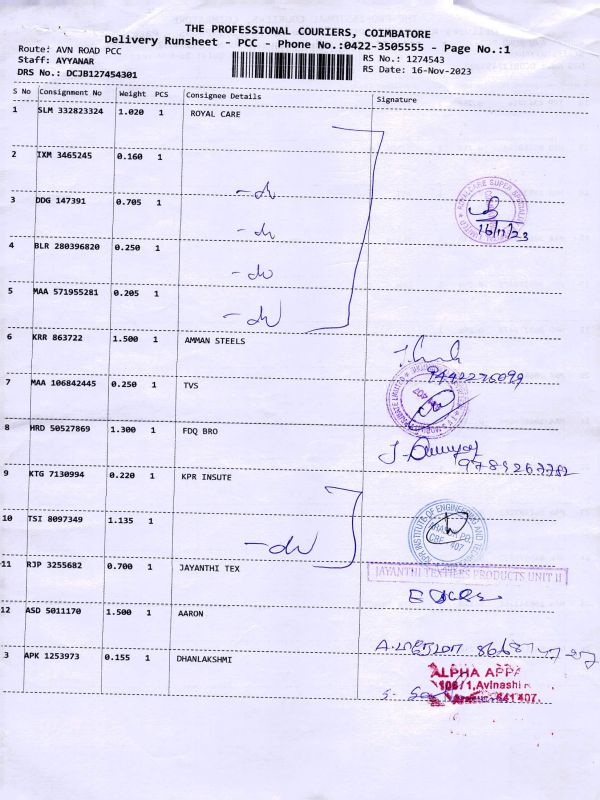 THE PROFESSIONAL COURIERS, COIMBATORE
Delivery Runsheet - PCC - Phone No.:0422-3505555 - Page No.:1
Route: AVN ROAD PCC
Staff: AYYANAR
DRS No.: DCJB127454301
RS No.: 1274543
RS Date: 16-Nov-2023
S No Consignment No Weight PCS Consignee Details Signature
1 SLM 332823324 1.020 1 ROYAL CARE
2 IXM 3465245 0.160 1
3 DDG 147391 0.705 1
16/11/23
4 BLR 280396820 0.250 1
5 MAA 571955281 0.205 1
6 KRR 863722 1.500 1 AMMAN STEELS
9442276099
7 MAA 106842445 0.250 1 TVS
8 HRD 50527869 1.300 1 FDQ BRO
9789267782
9 KTG 7130994 0.220 1 KPR INSUTE
KPR INSTITUTE OF ENGINEERING AND
10 TSI 8097349 1.135 1
11 RJP 3255682 0.700 1 JAYANTHI TEX
JAYANTHI TEXTILES PRODUCTS UNIT II
12 ASD 5011170 1.500 1 AARON
3 APK 1253973 0.155 1 DHANLAKSHMI
ALPHA APPA
106/1,Avinashi R
641 407.